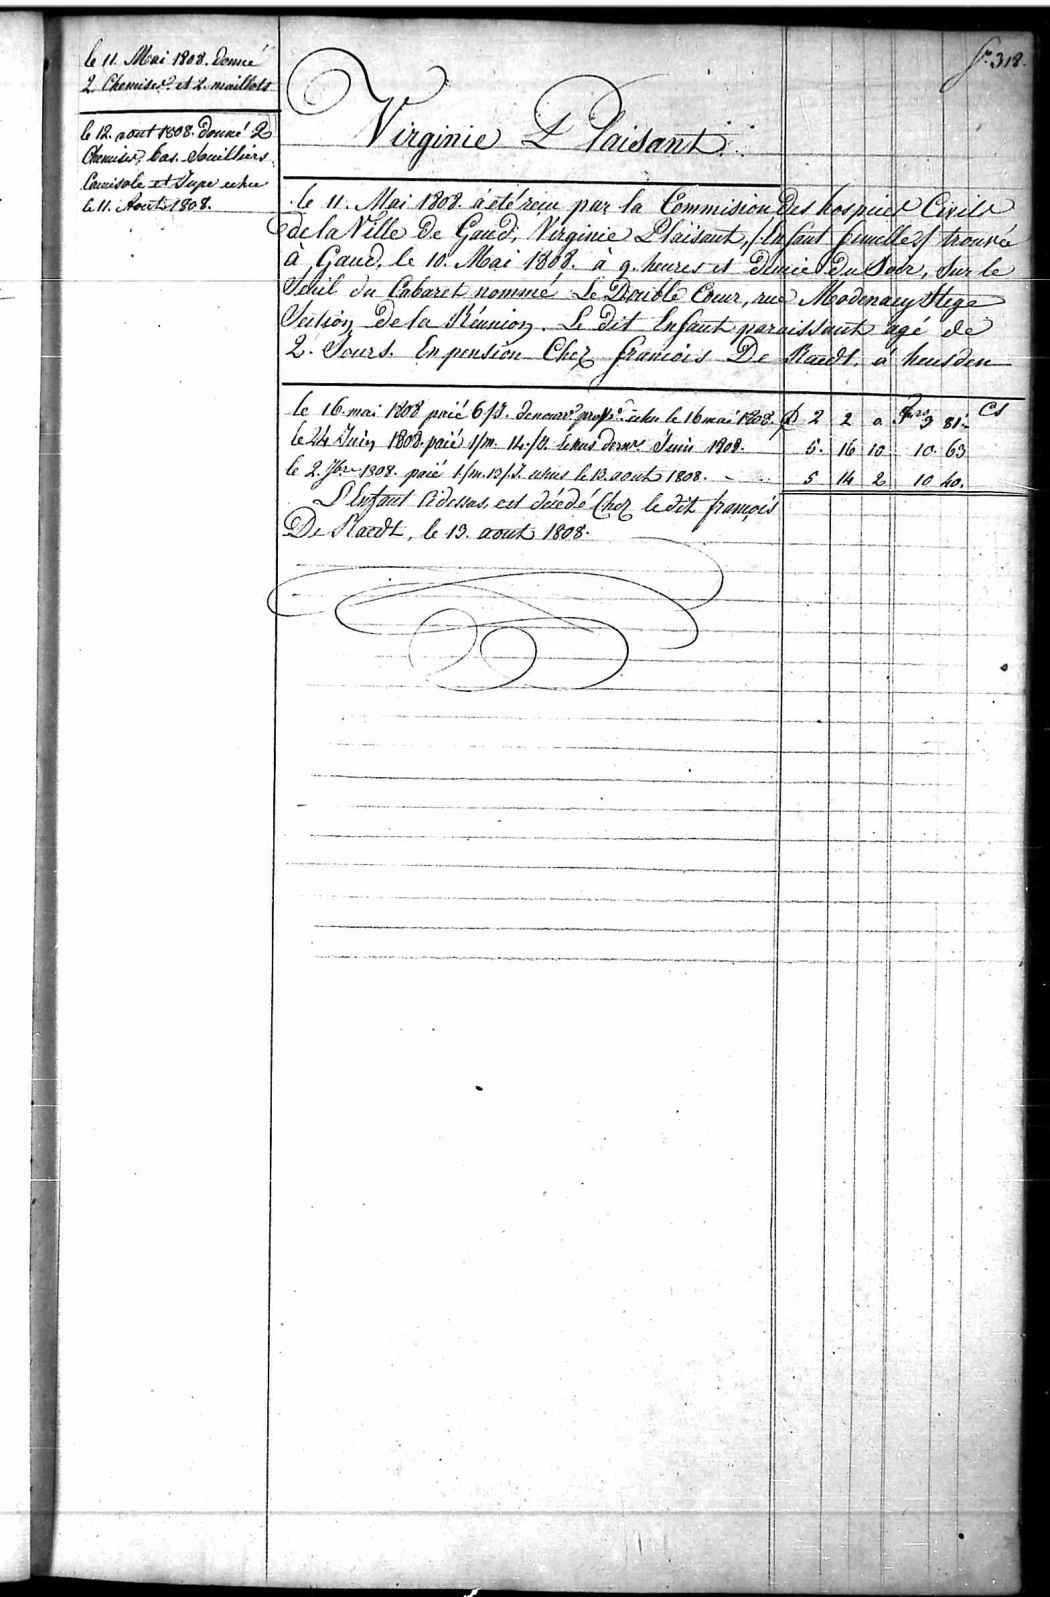 fo. 318.
le 11. Mai 1808. donné
2. Chemises. et 2. maillots
le 12. aout 1808. donné 2
Chemises, bas. Souilliers
Camisole et Jupe echu
le 11. Aout 1808.
Virginie Plaisant.
le 11. Mai 1808. a été reçu par la Commision des hospices Civils
de la Ville de Gand, Virginie Plaisant, (Enfant femelle) trouvée
à Gand, le 10. Mai 1808. à 9. heures et demie du Soir, Sur le
Seuil du Cabaret nommé Le Double Coeur, rue
Section de la Réunion. Le dit Enfant paraissant agé de
2. Jours. En pension Chez francois De Raedt, à heusden
frs Cs
le 16. mai 1808 paié 6/J. echu le 16 mai 1808. 2 2 0 3 81
le 24 Juin 1808. paié 1/m. 14./J. Juin 1808. 5. 16 10 10. 63
le 2. 7bre 1808. paié 1/m. 13/J. echus le 13. aout 1808. 5 14 2 10 40.
L'Enfant Cidessus, est décédé Chez le dit françois
De Raedt, le 13. aout 1808.